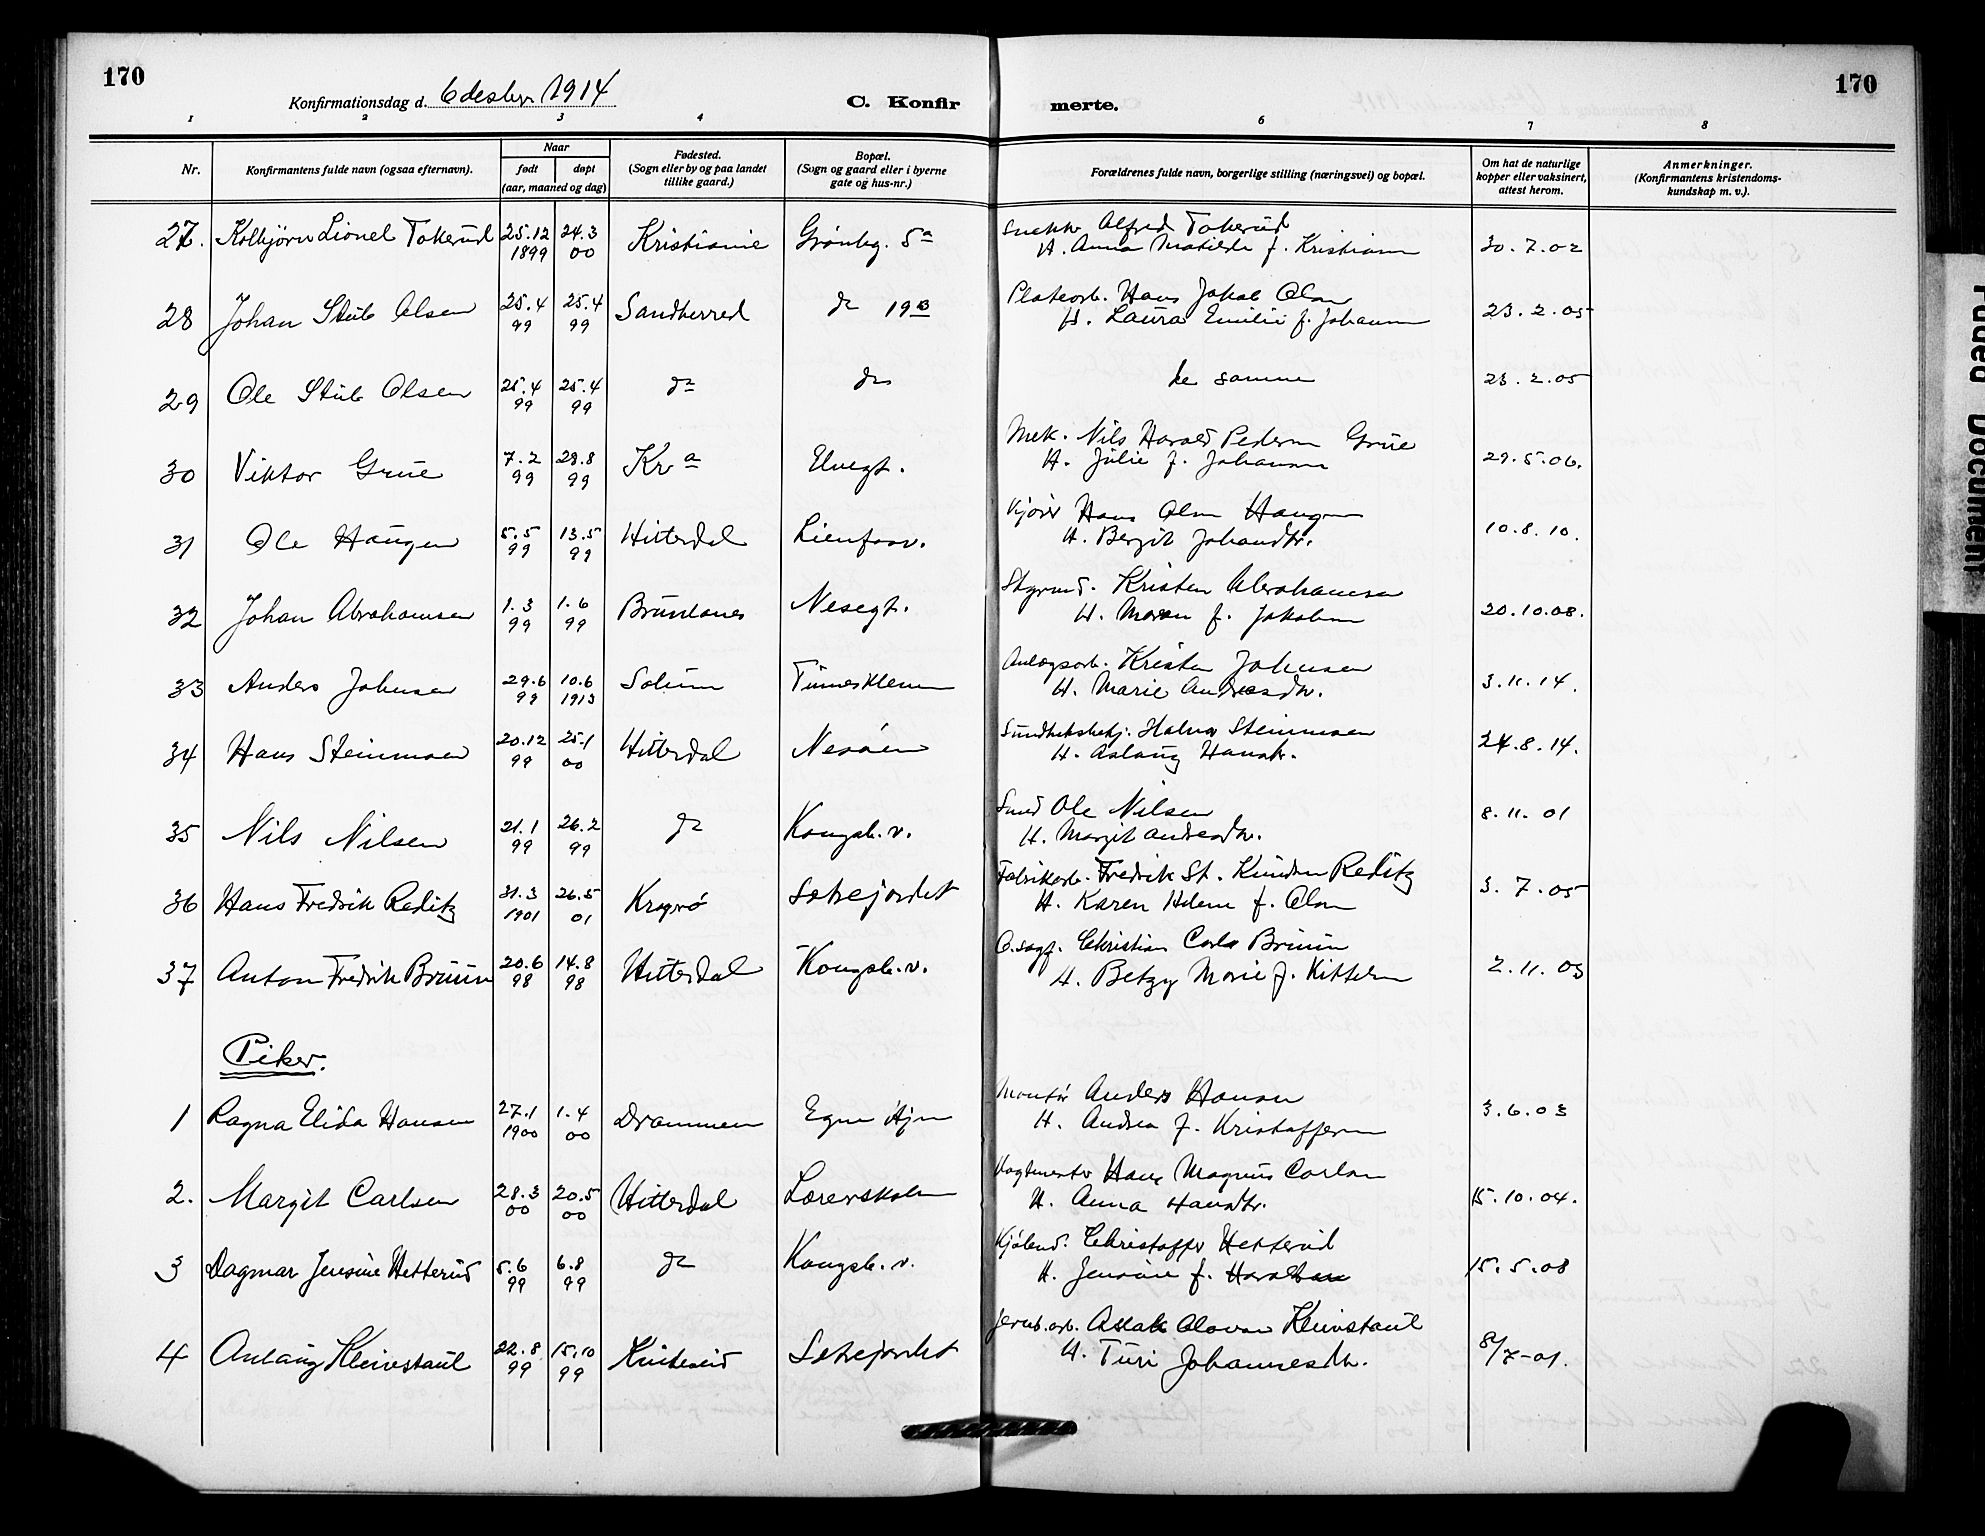 170
Konfirmationsdag d. 6 desbr 1914
C. Konfir
merte.
170
1 2 3 4 5 6 7 8
Nr.
Konfirmantens fulde navn (ogsaa efternavn).
Naar
født
døpt
(aar, maaned og dag)
Fødested.
(Sogn eller by og paa landet
tillike gaard.)
Bopæl.
(Sogn og gaard eller i byerne
gate og hus-nr.)
Forældrenes fulde navn, borgerlige stilling (næringsvei) og bopæl.
Om hat de naturlige
kopper eller vaksinert,
attest herom.
Anmerkninger.
(Konfirmantens kristendoms-
kundskap m. v.).
27. Kolbjørn Lionel Tokerud 25.12 1899 24.3 00 Kristiania Grønbg. 5a
Snekk. Alfred Tokerud
H. Anna Matilde f. Kristiansen 30.7.02
28 Johan Stub Olsen 25.4 99 25.4 99 Sandherred do 19B
Platearb. Hans Jakob Olsen
H. Laura Emilie f. Johansen 23.2.05
29 Ole Stub Olsen 25.4 99 25.4 99 do do de samme 23.2.05
30 Viktor Grue 7.2 99 28.8 99 Kra Elvegt.
Mek. Nils Harald Pedersen Grue
H. Julie f. Johansen 29.5.06.
31 Ole Haugen 5.5 99 13.5 99 Hitterdal Lienfosv.
Kjører Hans Olsen Haugen
H. Bergit Johansdtr. 10.8.10.
32 Johan Abrahamsen 1.3 99 1.6 99 Brunlanes Nesegt.
Styrmd. Kristen Abrahamsen
H. Maren f. Jakobsen 20.10.08.
33 Anders Johnsen 29.6 99 10.6 1913 Solum Tinnesklem
Anlægsarb. Kristen Johnsen
H. Marie Andreasdtr. 3.11.14.
34 Hans Steinmoen 20.12 99 25.1 00 Hitterdal Nesøen
Sundhetsbetj. Halvor Steinmoen
H. Aslaug Hansdtr. 24.8.14.
35 Nils Nilsen 21.1 99 26.2 99 do Kongsb.v.
Smed Ole Nilsen
H. Margit Andersdtr. 8.11.01
36 Hans Fredrik Reditz 31.3 1901 26.5 01 Kragerø Sætrejordet
Fabrikarb. Fredrik St. Knudsen Reditz
H. Karen Helene f. Olsen 3.7.05
37 Anton Fredrik Bruun 20.6 98 14.8 98 Hitterdal Kongsb.v.
O.sagf. Christian Carl Bruun
H. Betzy Marie f. Kittelsen 2.11.03
Piker.
1 Ragna Elida Hansen 27.1 1900 1.4 00 Drammen Egne Hjem
Montør Anders Hansen
H. Andrea f. Kristoffersen 3.6.03
2. Margit Carlsen 28.3 00 20.5 00 Hitterdal Lærerskolen
Vagtmester Hans Magnus Carlsen
H. Anna Hansdtr. 15.10.04.
3 Dagmar Jensine Hetterud 5.6 99 6.8 99 do Kongsb.v.
Kjøbmd. Christoffer Hetterud
H. Jensine f. Haraldsen 15.5.08
4 Anlaug Kleivstaul 22.8 99 15.10 99 Kviteseid Sætrejordet
Jernb.arb. Aslak Olavsen Kleivstaul
H. Turi Johannesdtr. 8/7-01.
Tilded Document